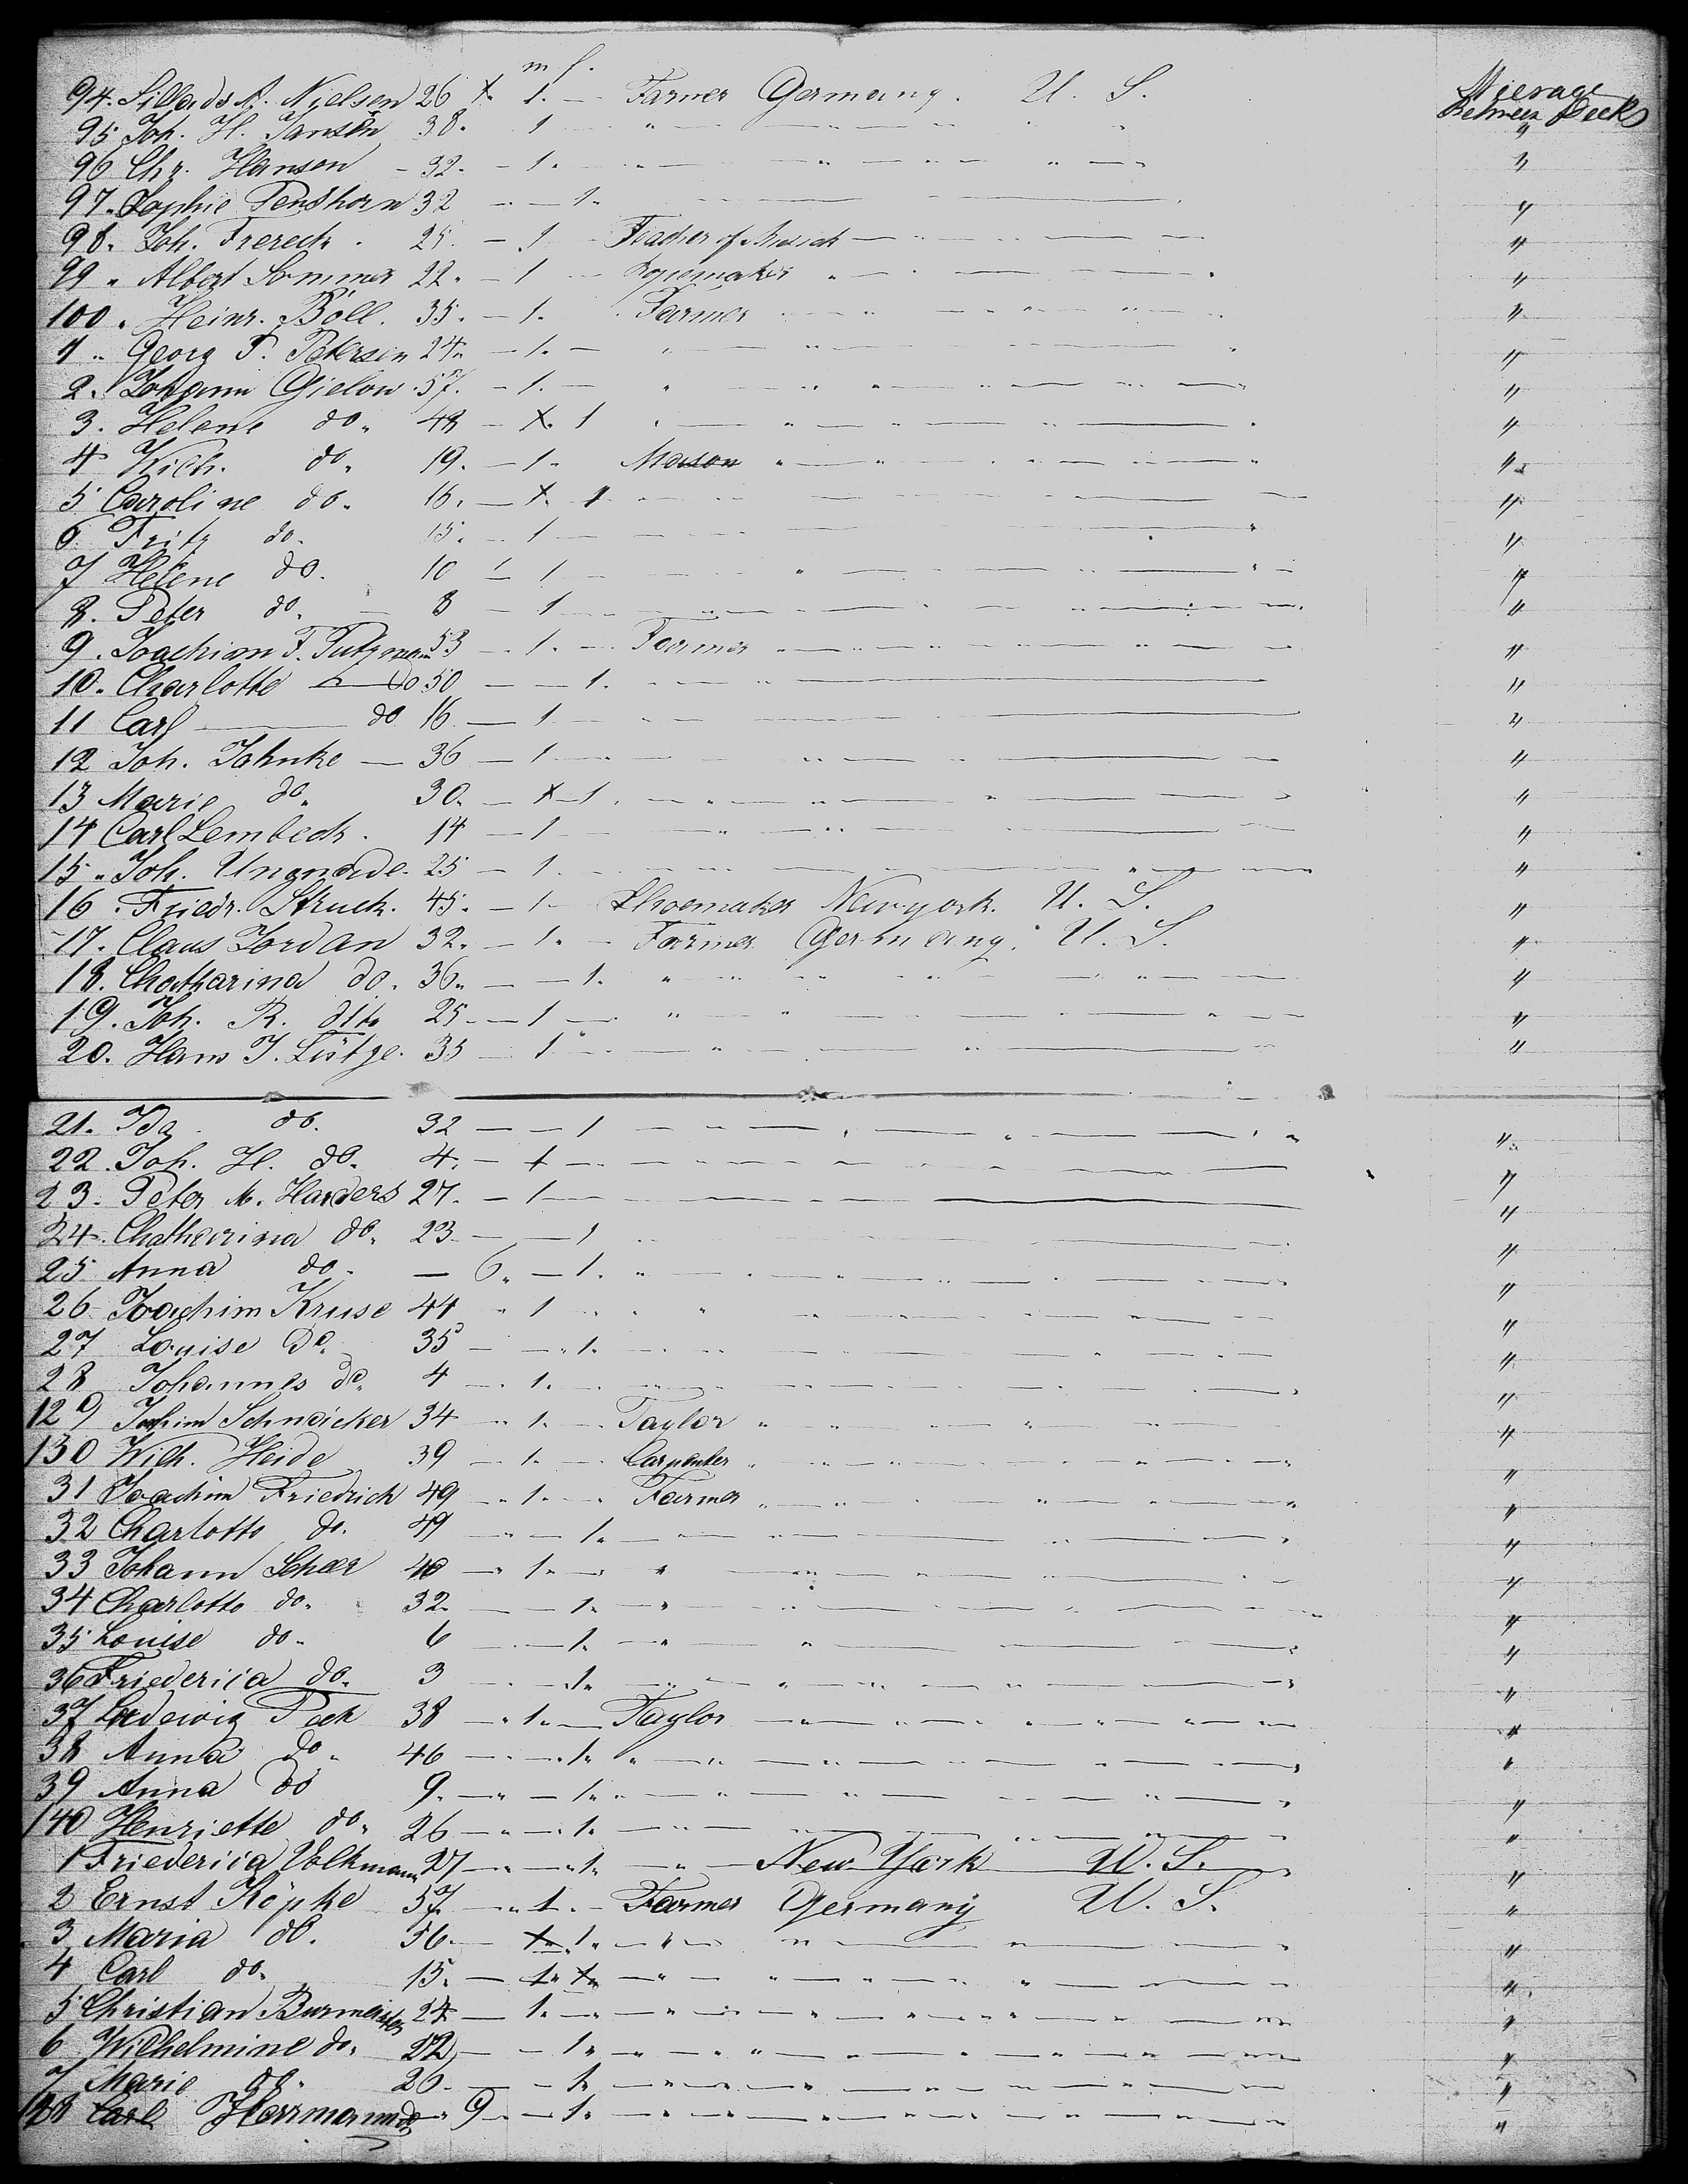 m f.
94. A. Nielsen 26 1. — Farmer Germany. U. S. Between Decks
95 Joh. H. Jansen 38. 1 " "
96 Chr. Hansen - 32. - 1. " "
97. Sophie Penshorn 32 — 1. "
98. Joh. Frerech . 25. - 1 Teacher of Musick "
99 " Albert Sommer 22. - 1 Ropemaker "
100 . Heinr. Böll. 35. - 1. Farmer "
1 " Georg P. Petersen 24. - 1. - " "
2. Johann Gielow . 57. - 1. - " "
3. Helene do. 48 - X. 1 "
4 Wilh. do. 19. - 1. Mason " "
5 Caroline do. 16. — X. 1 "
6. Fritz do. 15. - 1 "
7 Helene do. 10 - 1 "
8. Peter do. — 3 - 1 "
9. Joachim F. 53 - 1. - Farmer "
10. Charlotte — do 50 — 1. "
11 Carl — do. 16 — 1 "
12 Joh. Johnke — 36 - 1 "
13 Marie do. 30. - X 1. "
14 Carl Lembeck. 14 - 1 "
15 " Joh. Ungnade. 25 - 1. "
16 . Friedr. Struck. 45. - 1 - Shoemaker Newyork. U. S. "
17. Claus Jordan 32. - 1. - Farmer Germany. U. S. "
18. Chatharina do. 36. — 1. " "
19. Joh. R. dito 25. — 1 — " "
20. Hans J. Lütge. 35 1. — " "
21. Ida do. 32 — — 1 "
22. Joh. H. do. 4. — 1 — "
23. Peter M. Harders 27. — 1 — "
24. Chatharina do. 23. — — 1 "
25 Anna do. — 6. — 1. " "
26 Joachim Kruse 44 " 1 " "
27 Louise do. 35 — 1. "
28 Johannes do. 4 — 1. "
129 Schnäcker 34 " 1. — Taylor " "
130 Wilh. Heide 39 — 1. — Carpenter " "
31 Joachim Friedrich 49 — 1. — Farmer " "
32 Charlotte do. 49 — 1. — "
33 Johann Scheer 40 — 1. — " "
34 Charlotte do. 32. — 1. " "
35 Louise do. 6 — 1. " "
36 Friedericia do. 3 1. "
37 Ludewig Peck 38 — 1. — Taylor "
38 Anna do. 46 — 1. " "
39 Anna do 9. — 1. "
140 Henriette do. 26 — 1. "
1 Friedericia Volkmann 27 — 1. — " — New York U. S. "
2 Ernst Köpke 57. — 1. - Farmer Germany U. S. "
3 Maria do. 56. — X. 1. "
4 Carl do. 15. — 1. X. "
5 Christian Burmeister 24 — 1. "
6 Wilhelmine do. 22 — 1. "
7 Marie do. 20. — 1. "
148 Carl Herrmann do 9 — 1. "